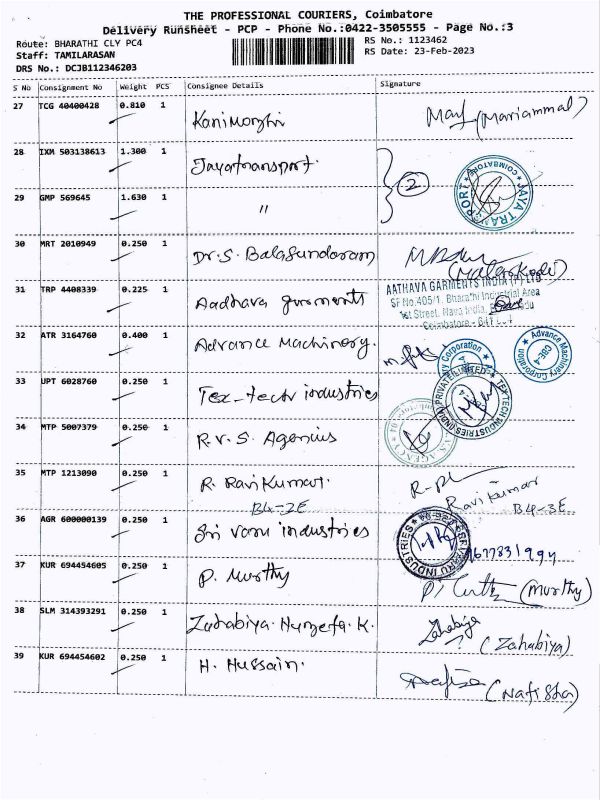 THE PROFESSIONAL COURIERS, Coimbatore
Delivery Runsheet - PCP - Phone No.:0422-3505555 - Page No.:3
Route: BHARATHI CLY PC4
RS No.: 1123462
Staff: TAMILARASAN
RS Date: 23-Feb-2023
DRS No.: DCJB112346203
S No Consignment No Weight PCS Consignee Details Signature
27 TCG 40400428 0.810 1 Kanimozhi (Mariammal)
28 IXM 503138613 1.300 1 Jayatransport. 2 JAYA TRANSPORT COIMBATORE
29 GMP 569645 1.630 1 "
30 MRT 2010949 0.250 1 Dr.S. Balasundaram (Malarkodi)
31 TRP 4408339 0.225 1 Aadhava garments
AATHAVA GARMENTS INDIA (P) LTD
SF No.405/1, Bharathi Industrial Area
1st Street, Nava India,
Coimbatore - 641
32 ATR 3164760 0.400 1 Advance Machinery. Advance Machinery Corporation CBE-4
33 UPT 6028760 0.250 1 Tex-tech industries TEXTECH INDUSTRIES (INDIA) PRIVATE LIMITED
34 MTP 5007379 0.250 1 R.V.S. Agenius
35 MTP 1213090 0.250 1 R. Ravi Kumar. Ravi Kumar
B4-2E B4-3E
36 AGR 600000139 0.250 1 Sri varu industries SRI VARU INDUSTRIES 9677831994
37 KUR 694454605 0.250 1 P. Murthy (Murthy)
38 SLM 314393291 0.250 1 Zahabiya. Huzefa. K. Zahabiya (Zahabiya)
39 KUR 694454602 0.250 1 H. Hussain. (Nafisha)